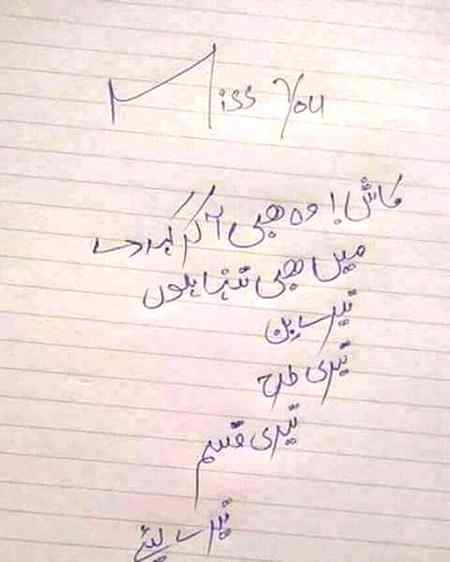 Miss You
کاش! وہ بھی آ کر کہہ دے
میں بھی تنہا ہوں
تیرے بن
تیری طرح
تیری قسم
تیرے لیئے